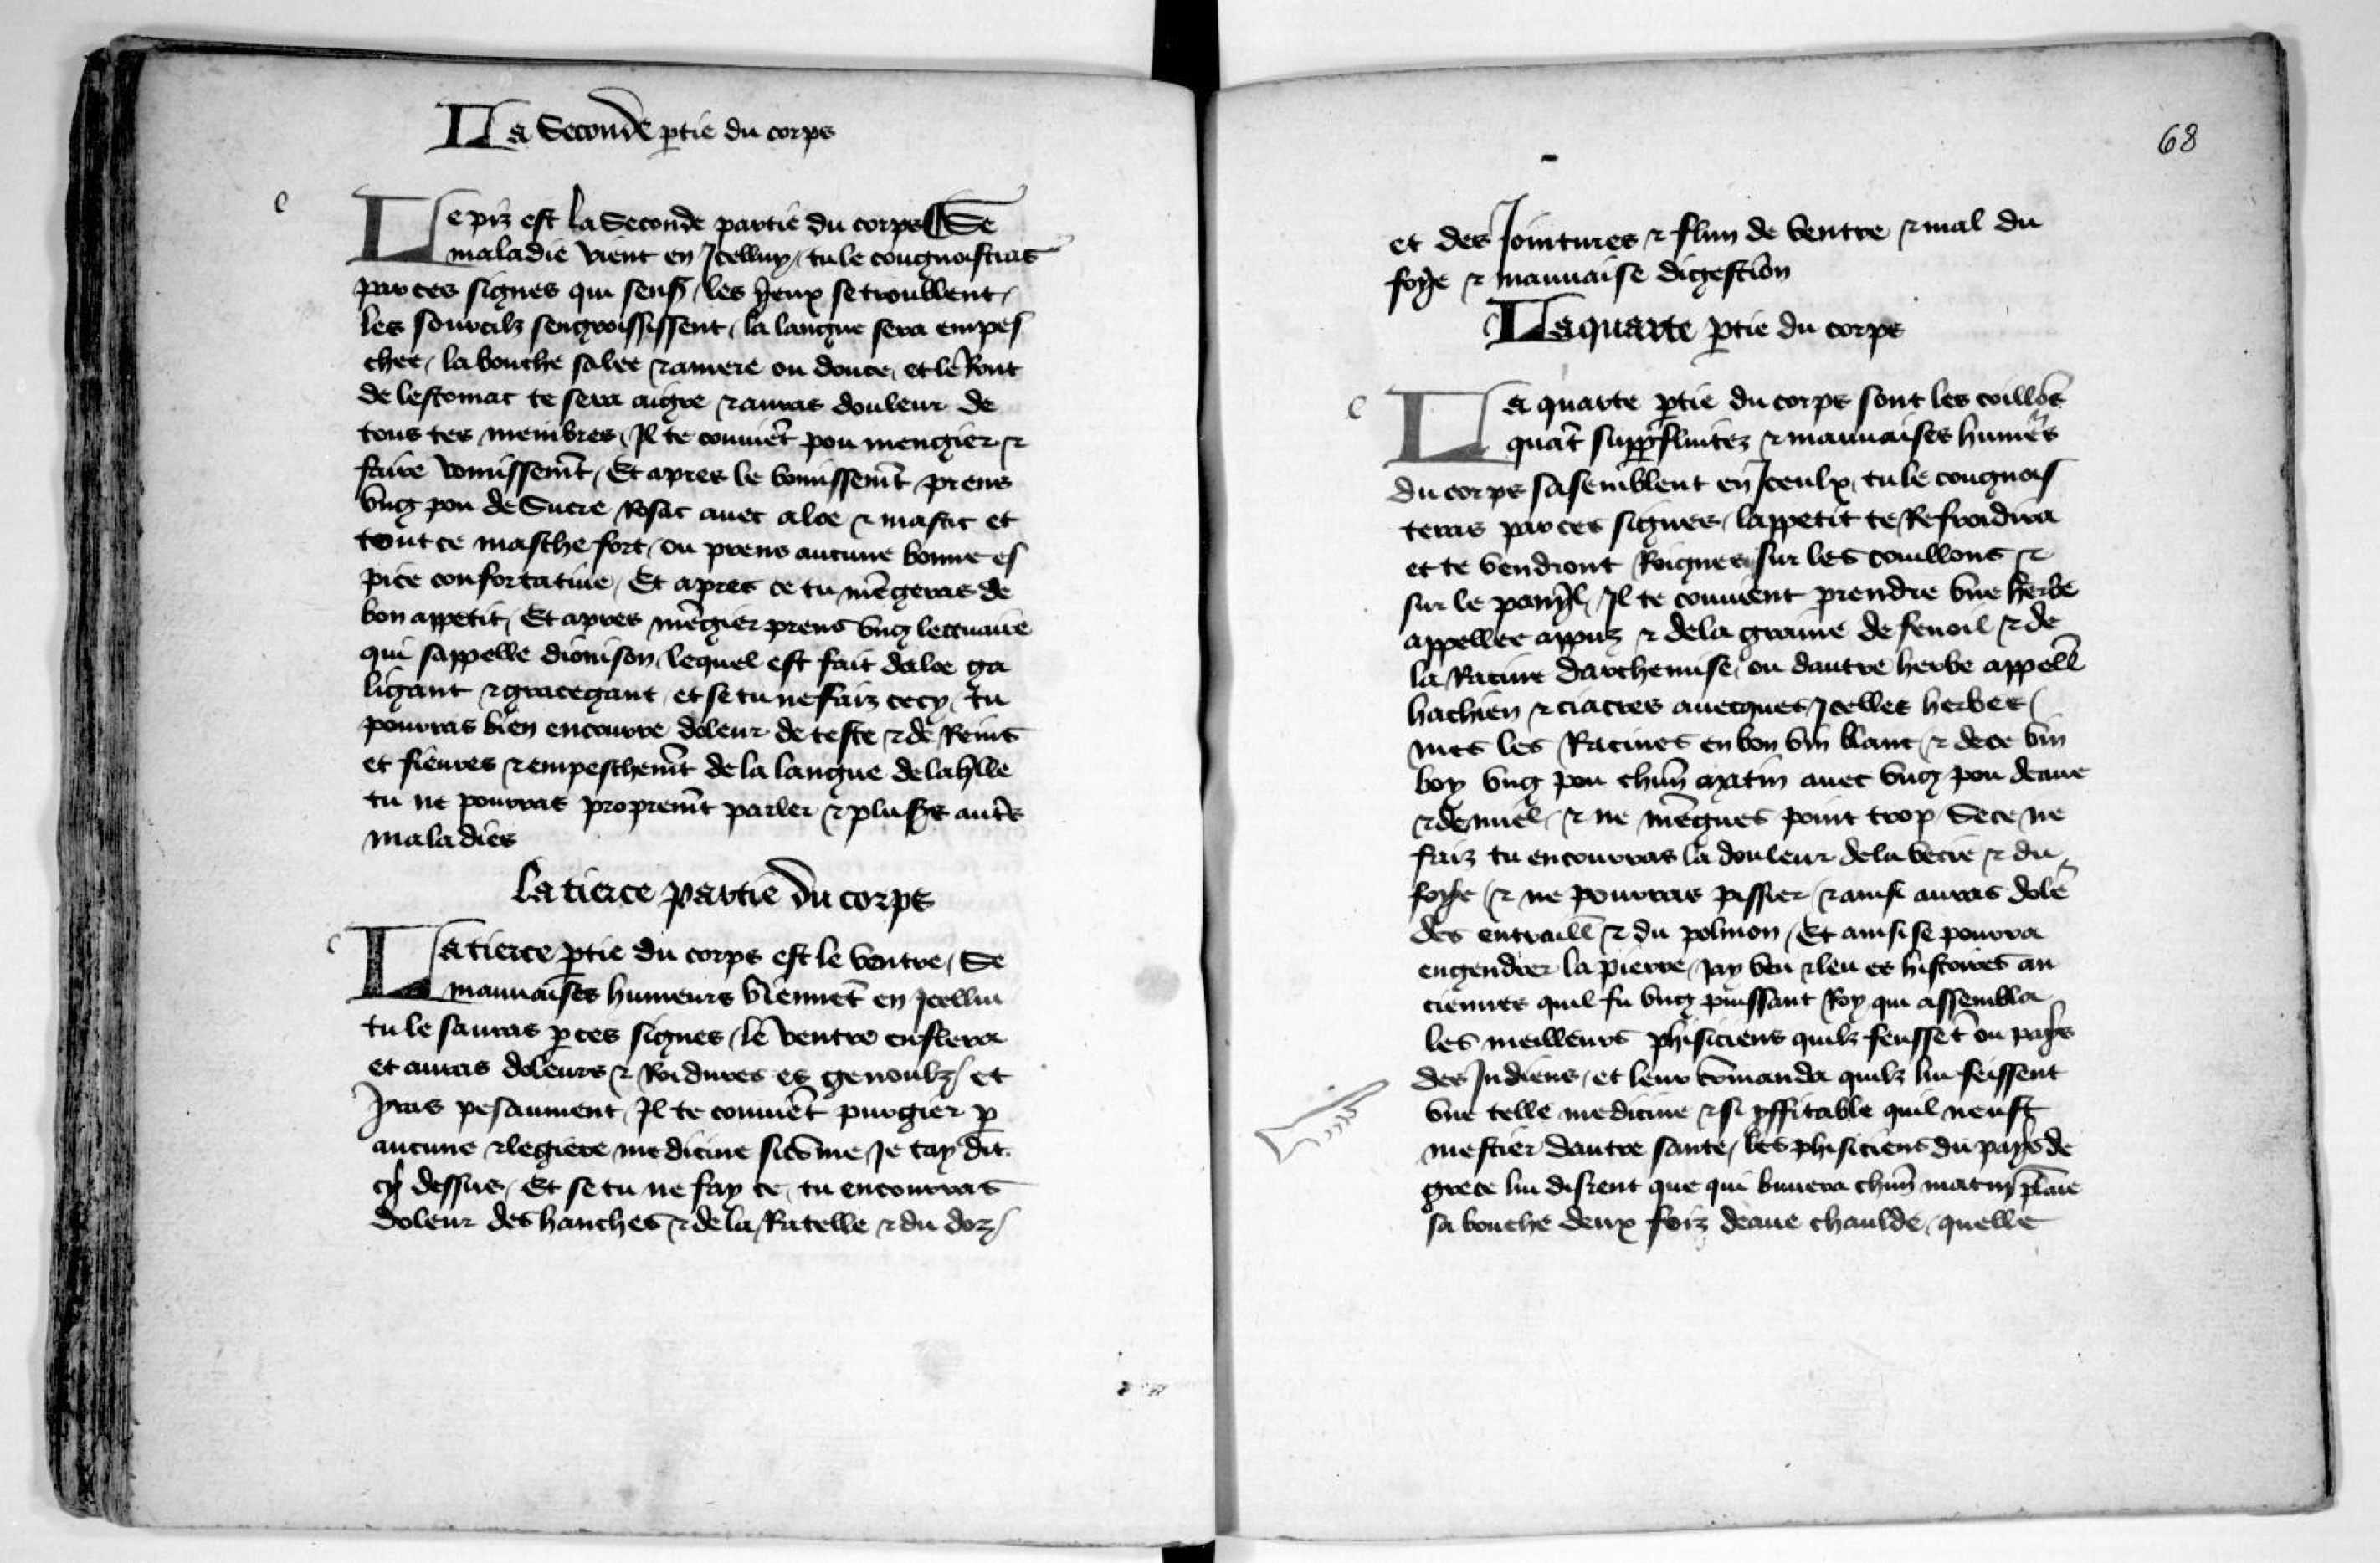 La Seconde ptie du corps
Le piz est la Seconde partie du corps Se
maladie vient en Icelluy / tu le congnoistras
par ces signes qui sens / les yeux se troublent /
les sourcilz sengroississent / la langue sera empes
chee / la bouche salee ⁊ amere ou douce / et le Rout
de lestomac te sera aigre ⁊ auras douleur de
tous tes membres / Il te conuiēt pou mengier ⁊
faire vomissemt̄ / Et apres le vomissemt̄ prens
vng pou de Sucre Rosat auec aloe ⁊ mastic et
tout ce masche fort / ou prens aucune bonne es
pice confortatiue / Et apres ce tu mēgeras de
bon appetit / Et apres mēgier prens vng lettuaire
qui sappelle dionison / lequel est fait daloe ga
ligant ⁊ gracegant / et se tu ne faiz cecy / tu
pourras bien encourre doleur de teste ⁊ de Reins
et fieures ⁊ empeschemt̄ de la langue de laqlle
tu ne pourras propremt̄ parler ⁊ plusrs autrs
maladies
La tierce partie du corps
La tierce ptie du corps est le ventre / Se
mauuaises humeurs viennēt en Icellui
tu le sauras p ces signes / le ventre enflera
et auras doleurs ⁊ Roidures es genoulz / et
Iras pesaument / Il te conuiēt purgier p
aucune ⁊ legiere medicine sicōme Je tay dit
cy dessus / Et se tu ne fay ce / tu encourras
doleur des hanches ⁊ de la Ratelle ⁊ du doz /
68
et des Jointures ⁊ flun de ventre ⁊ mal du
foye ⁊ mauuaise digestion
La quarte ptie du corps
La quarte ptie du corps sont les coillōs
quāt suppfluitez ⁊ mauuaises humeᵘrs
du corps sasemblent en Iceulx / tu le congnois
teras par ces signes / lappetit te Refroidira
et te vendront Roignes sur les couillons ⁊
sur le penyl / Il te conuient prendre vne herbe
appellee appuz ⁊ de la graine de fenoil ⁊ de
la Racine darthemise / ou dautre herbe appell̄
hachien ⁊ ciatres auecques Icelles herbes /
mes les Racines en bon vin blanc / ⁊ de ce vin
boy vng pou chūn matin auec vng pou deaue
⁊ de miel / ⁊ ne mēgues point trop / Se ce ne
faiz tu encourras la douleur de la vecie ⁊ du
foye / ⁊ ne pourras pissier / ⁊ ainsi auras dolē
des entraill̄ ⁊ du polmon / Et ainsi se pourra
engendrer la pierre / Jay veu ⁊ leu es histoires an
ciennes quil fu vng puissant Roy qui assembla
les meilleurs phisiciens quilz feussēt ou pays
des Indiens / et leur cōmanda quilz lui feissent
vne telle medicine ⁊ si pffitable quil neust
mestier dautre sante / les phisiciens du pays de
grece lui disrent que qui buuera chūn matin plaīe
sa bouche deux foiz deaue chaulde / quelle